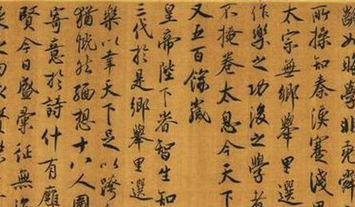 如晦
所操知秦漢蹇淺
太宗無鄉舉里選
作樂之功後之學者
不掩卷太息今天下
又五百餘歲
皇帝陛下睿智生知
三代於是鄉舉里選
樂以天下足以跨
猶慨然緬想十八人圖
寄意於詩什有廱
賢今日盛彙征無